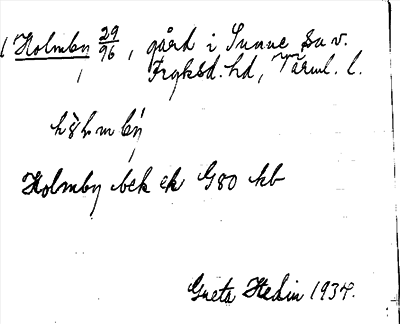 Holmby 29/96, gård i Sunne sn v.
Fryksd. hd, Värml. l.
Holmby bck ek G80 kb
Greta Hedin 1934.